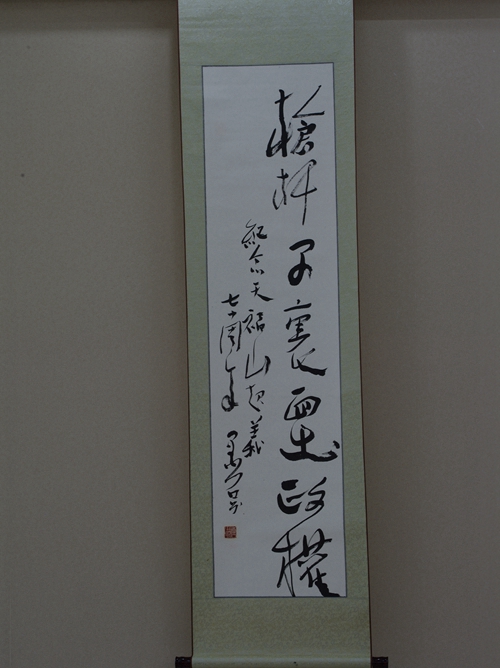 槍桿子裏面出政權
紀念天福山起義
七十周年